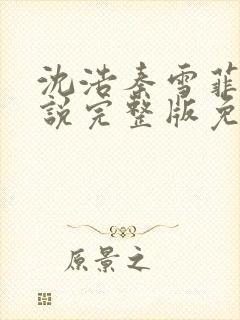 沈浩秦雪菲
說完整版免
原景之